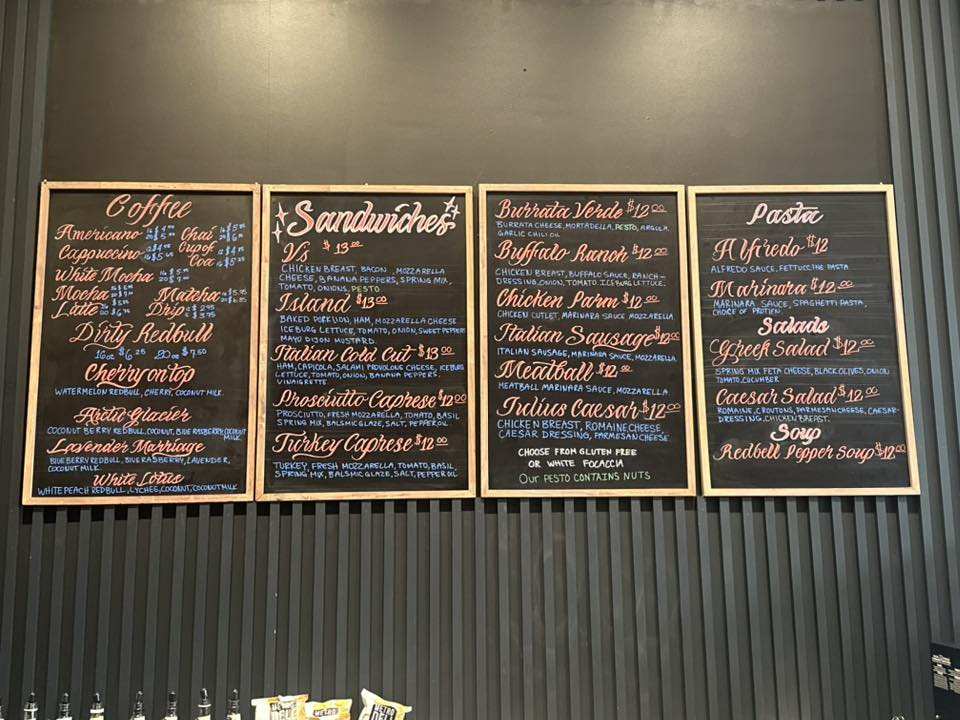 Coffee
Americano 16 $4
20 $5
Chai 16 $5
20 $6
Cappuccino 12 $4
16 $5
Cup of Coa 12 $4
16 $5.25
White Mocha 16 $5
20 $7
Mocha
Matcha 16 $5.95
20 $6.85
Latte
Drip $2.95
$3.95
Dirty Redbull
16oz $6.25 20oz $7.50
Cherry on top
WATERMELON REDBULL, CHERRY, COCONUT MILK.
Arctic Glacier
COCONUT BERRY REDBULL, COCONUT, BLUE RASBERRY, COCONUT
MILK.
Lavender Marriage
BLUEBERRY REDBULL, BLUE RASBERRY, LAVENDER,
COCONUT MILK.
White Lotus
WHITE PEACH REDBULL, LYCHEE, COCONUT, COCONUT MILK
Sandwiches
V's $13.00
CHICKEN BREAST, BACON, MOZZARELLA
CHEESE, BANANA PEPPERS, SPRING MIX,
TOMATO, ONIONS, PESTO
Island $13.00
BAKED PORK LION, HAM, MOZZARELLA CHEESE
ICEBURG LETTUCE, TOMATO, ONION, SWEET PEPPERS
MAYO DIJON MUSTARD.
Italian Cold Cut $13.00
HAM, CAPICOLA, SALAMI PROVOLONE CHEESE, ICEBURG
LETTUCE, TOMATO, ONION, BANANA PEPPERS.
VINAIGRETTE
Prosciutto Caprese $12.00
PROSCIUTTO, FRESH MOZZARELLA, TOMATO, BASIL
SPRING MIX, BALSMIC GLAZE, SALT, PEPPER OIL
Turkey Caprese $12.00
TURKEY, FRESH MOZZARELLA, TOMATO, BASIL,
SPRING MIX, BALSMIC GLAZE, SALT, PEPPER OIL
Burrata Verde $12.00
BURRATA CHEESE, MORTADELLA, PESTO, ARGULA,
GARLIC CHILI OIL
Buffalo Ranch $12.00
CHICKEN BREAST, BUFFALO SAUCE, RANCH-
DRESSING, ONION, TOMATO, ICEBURG LETTUCE.
Chicken Parm $12.00
CHICKEN CUTLET, MARINARA SAUCE MOZZARELLA
Italian Sausage $12.00
ITALIAN SAUSAGE, MARINARA SAUCE, MOZZARELLA.
Meatball $12.00
MEATBALL MARINARA SAUCE, MOZZARELLA.
Julius Caesar $12.00
CHICKEN BREAST, ROMAINE CHEESE
CAESAR DRESSING, PARMESAN CHEESE
CHOOSE FROM GLUTEN FREE
OR WHITE FOCACCIA
OUR PESTO CONTAINS NUTS
Pasta
Alfredo $12
ALFREDO SAUCE, FETTUCCINE PASTA
Marinara $12.00
MARINARA SAUCE, SPAGHETTI PASTA,
CHOICE OF PROTIEN.
Salads
Greek Salad $12.00
SPRING MIX, FETA CHEESE, BLACK OLIVES, ONION
TOMATO, CUCUMBER
Caesar Salad $12.00
ROMAINE, CROUTONS, PARMESAN CHEESE, CAESAR-
DRESSING, CHICKEN BREAST.
Soup
Redbell Pepper Soup $12.00
METRO
DELI
METRO
METRO
DELI